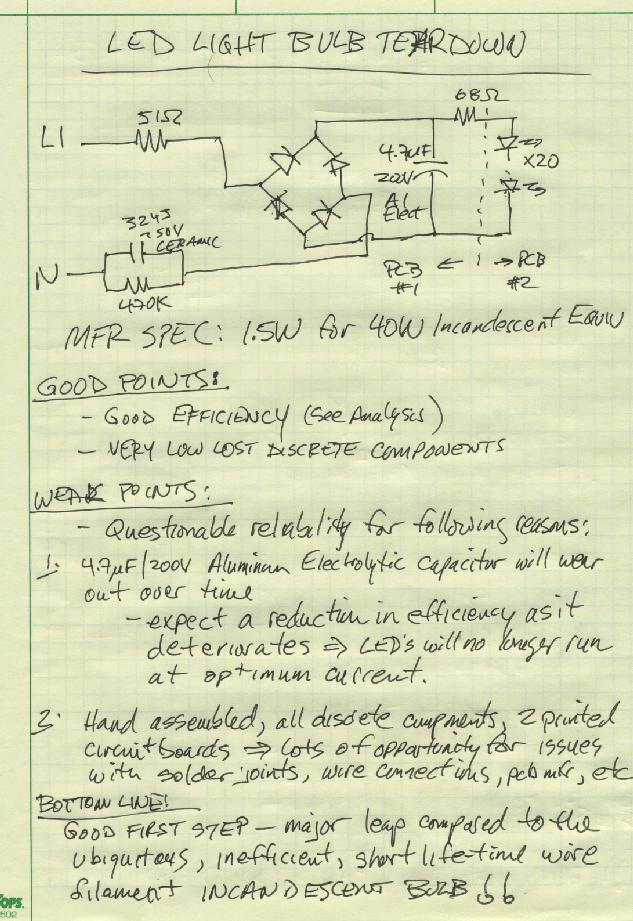 LED LIGHT BULB TEARDOWN
68Ω
51Ω
L1
4.7µF
200V
Al
Elect
X20
324J
250V
CERAMIC
N
470K
PCB
#1
PCB
#2
MFR SPEC: 1.5W for 40W Incandescent EQUIV
GOOD POINTS:
- GOOD EFFICIENCY (See Analysis)
- VERY LOW COST DISCRETE COMPONENTS
WEAK POINTS:
- Questionable reliability for following reasons:
1. 4.7µF/200V Aluminum Electrolytic Capacitor will wear
out over time
- expect a reduction in efficiency as it
deteriorates ⇒ LED's will no longer run
at optimum current.
2. Hand assembled, all discrete components, 2 printed
circuit boards ⇒ Lots of opportunity for issues
with solder joints, wire connections, pcb mfr, etc
BOTTOM LINE!
GOOD FIRST STEP - major leap compared to the
ubiquitous, inefficient, short life-time wire
filament INCANDESCENT BULB !!
TOPS.
502